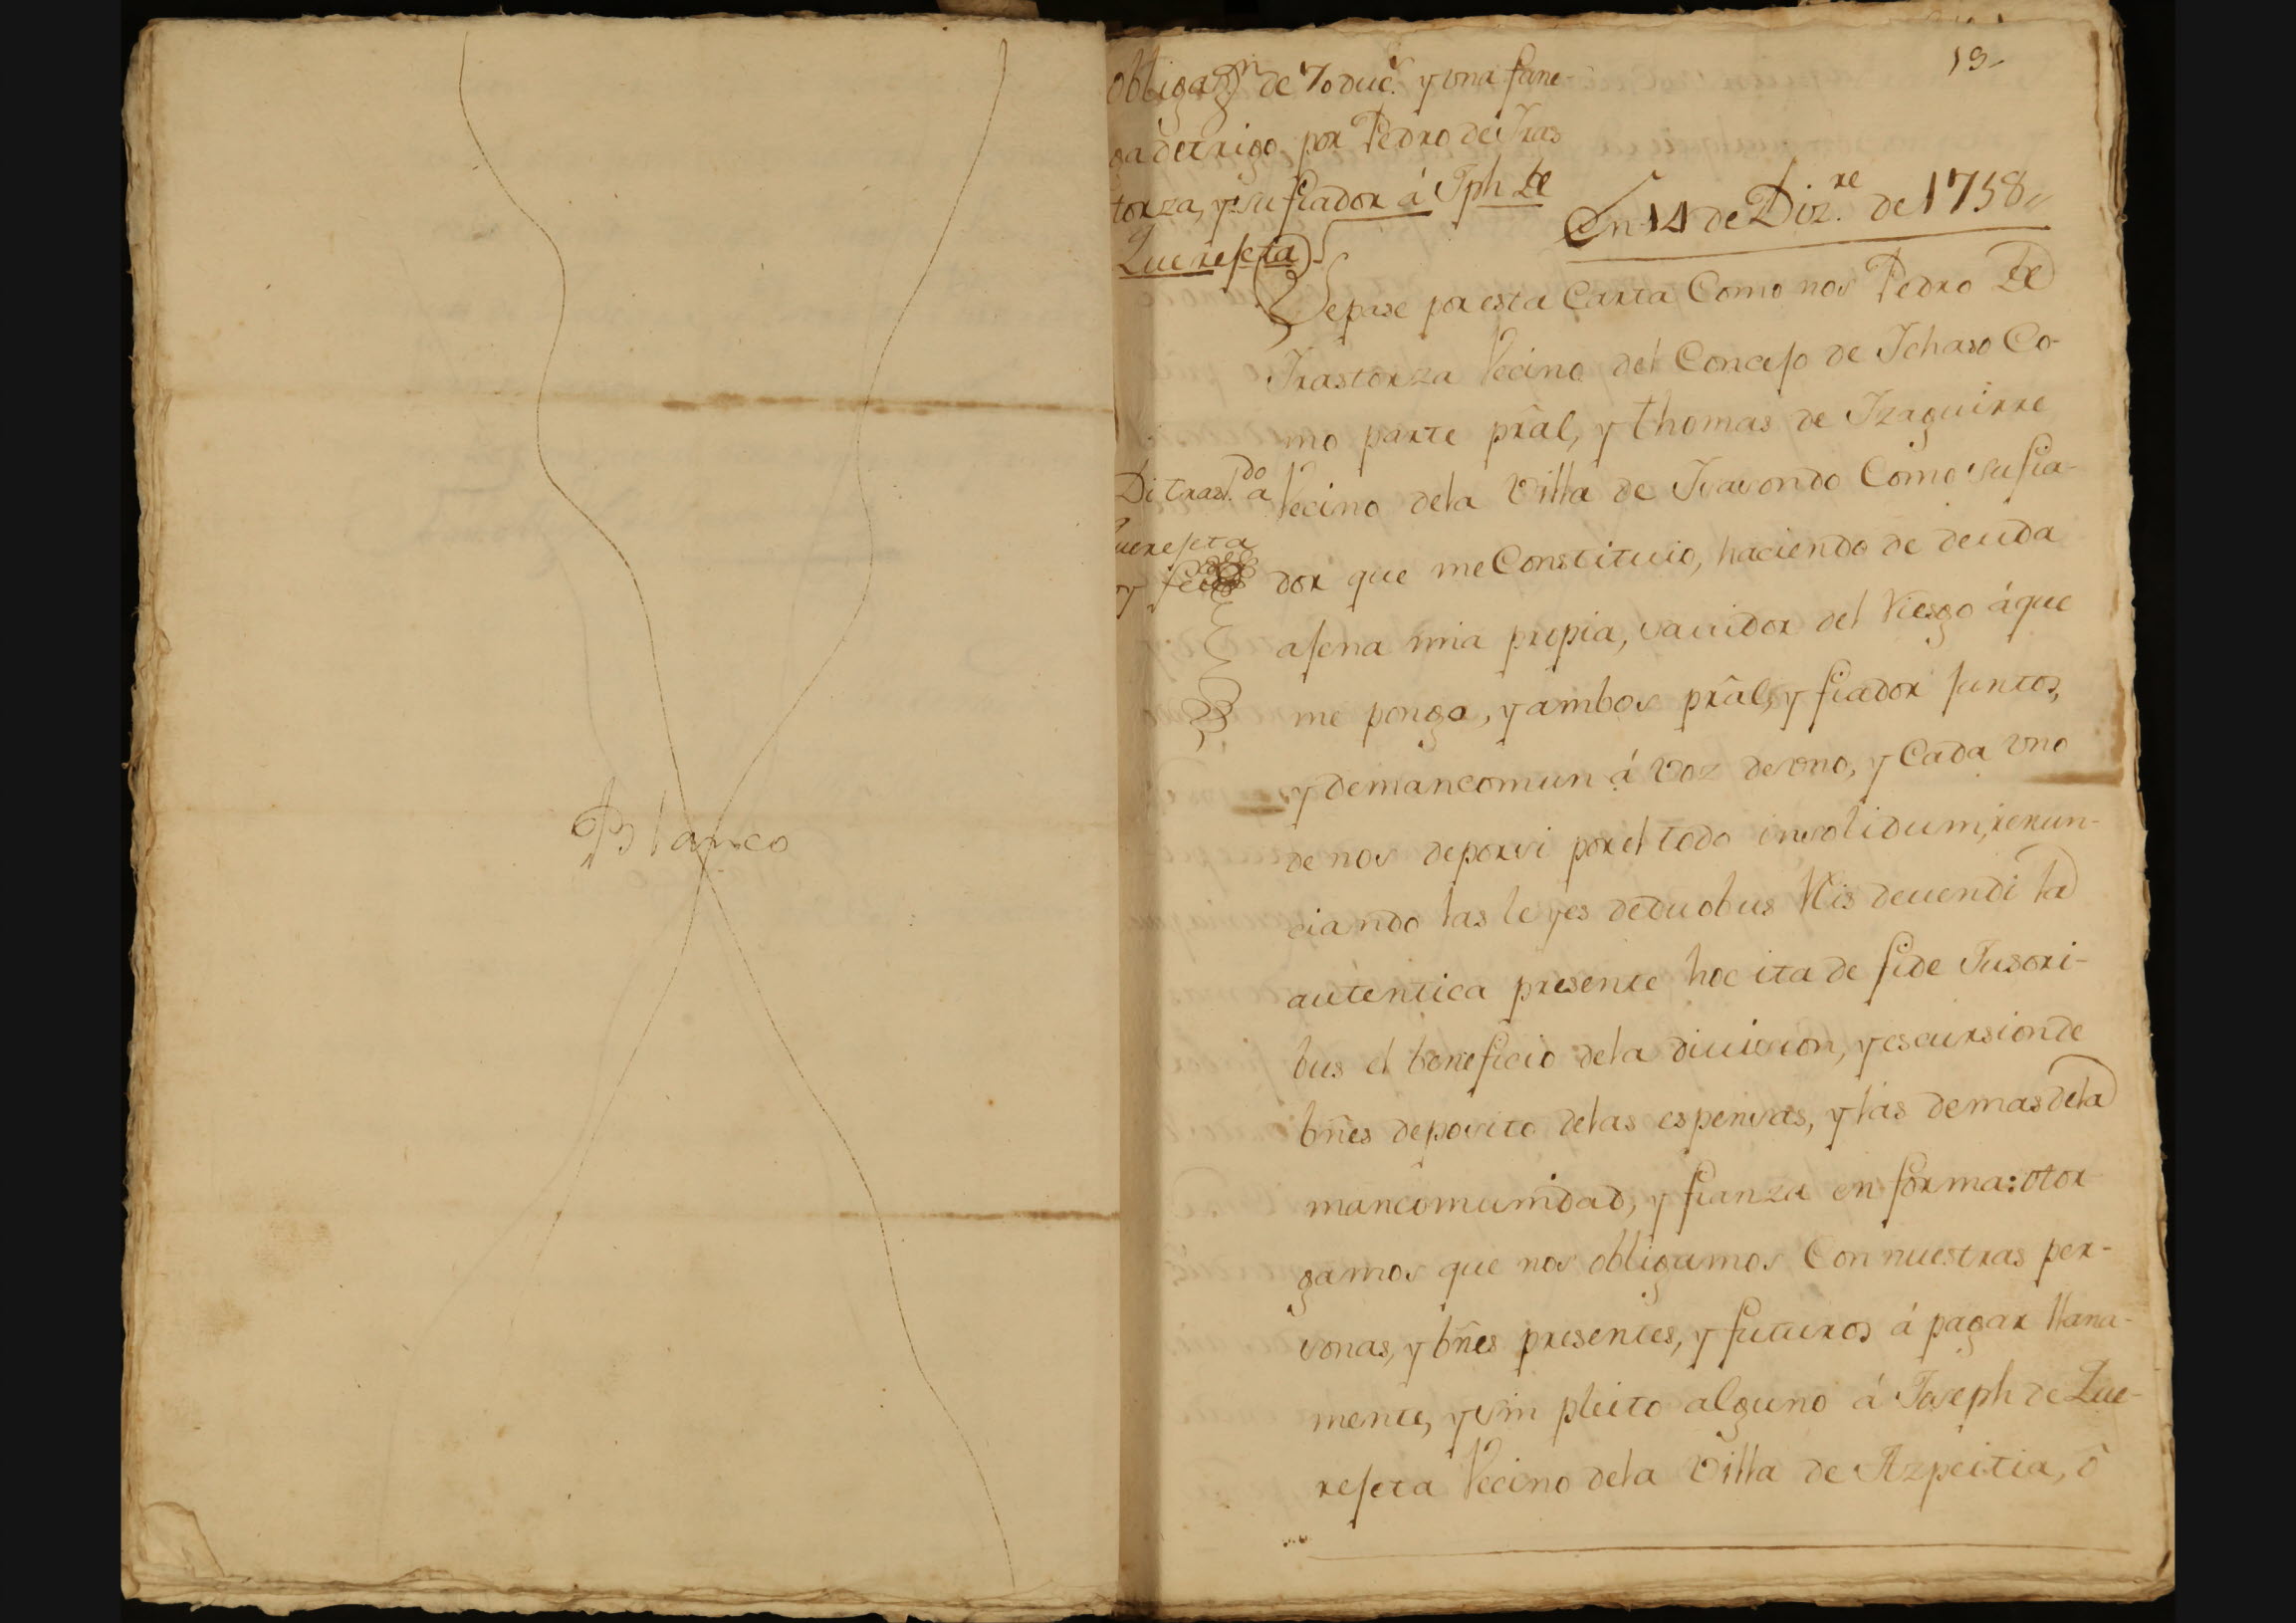 Blanco
19-
obligaz.n de 70 duc.s y vna fane-
ga de trigo por Pedro de Iras
torza, y su fiador á Jph de
Luerejeta
En 14 de Diz.re de 1758,,
Sepase por esta Carta Como nos Pedro de
Irastorza Vecino del Concejo de Ichaso Co-
mo parte prãl, y thomas de Izaguirre
Vecino dela Villa de Isasondo Como su fia-
dor que me Constituio, haciendo de deuda
ajena mia propia, sauidor del Riesgo á que
me pongo, y ambos prãl, y fiador juntos,
y demancomun á voz de vno, y Cada vno
de nos deporsi por el todo insolidum, renun-
ciando las leyes deduobus Reis deuendi la
autentica presente hoc ita de fide Jusori-
bus el beneficio dela diuision, y escursion de
bñes deposito delas espensas, y las demas dela
mancomunidad, y fianza en forma: otor
gamos que nos obligamos Con nuestras per-
sonas, y bñes presentes, y futuros á pagar llana-
mente, y sin pleito alguno á Joseph de Lue-
rejeta Vecino dela Villa de Azpeitia, ô
Di trasl.do a
Luerejeta
y